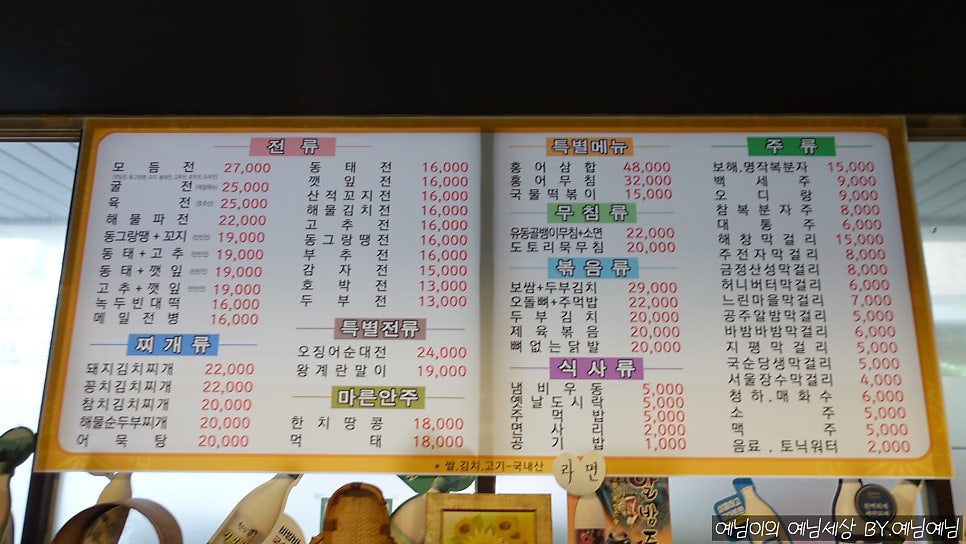 전 류
모 듬 전 27,000
굴 전 25,000
육 전 25,000
해 물 파 전 22,000
동그랑땡+꼬지 19,000
동 태+고 추 19,000
동 태+깻 잎 19,000
고 추+깻 잎 19,000
녹 두 빈 대 떡 16,000
메 밀 전 병 16,000
찌 개 류
돼지김치찌개 22,000
꽁치김치찌개 22,000
참치김치찌개 20,000
해물순두부찌개 20,000
어 묵 탕 20,000
동 태 전 16,000
깻 잎 전 16,000
산 적 꼬 지 전 16,000
해 물 김 치 전 16,000
고 추 전 16,000
동 그 랑 땡 전 16,000
부 추 전 16,000
감 자 전 15,000
호 박 전 13,000
두 부 전 13,000
특별전류
오징어순대전 24,000
왕 계 란 말 이 19,000
마른안주
한 치 땅 콩 18,000
먹 태 18,000
특별메뉴
홍 어 삼 합 48,000
홍 어 무 침 32,000
국 물 떡 볶 이 15,000
무 침 류
유동골뱅이무침+소면 22,000
도 토 리 묵 무 침 20,000
볶 음 류
보쌈+두부김치 29,000
오돌뼈+주먹밥 22,000
두 부 김 치 20,000
제 육 볶 음 20,000
뼈 없 는 닭 발 20,000
식 사 류
냄 비 우 동 5,000
옛 날 도 시 락 5,000
주 먹 밥 5,000
면 사 리 2,000
공 기 밥 1,000
주 류
보해,명작복분자 15,000
백 세 주 9,000
오 디 랑 9,000
참 복 분 자 주 8,000
대 통 주 6,000
해 창 막 걸 리 15,000
주 전 자 막 걸 리 8,000
금정산성막걸리 8,000
허니버터막걸리 6,000
느린마을막걸리 7,000
공주알밤막걸리 5,000
바밤바밤막걸리 6,000
지 평 막 걸 리 5,000
국순당생막걸리 5,000
서울장수막걸리 4,000
청 하 . 매 화 수 6,000
소 주 5,000
맥 주 5,000
음료 . 토닉워터 2,000
* 쌀.김치.고기-국내산
라 면
예님이의 예님세상 BY.예님예님